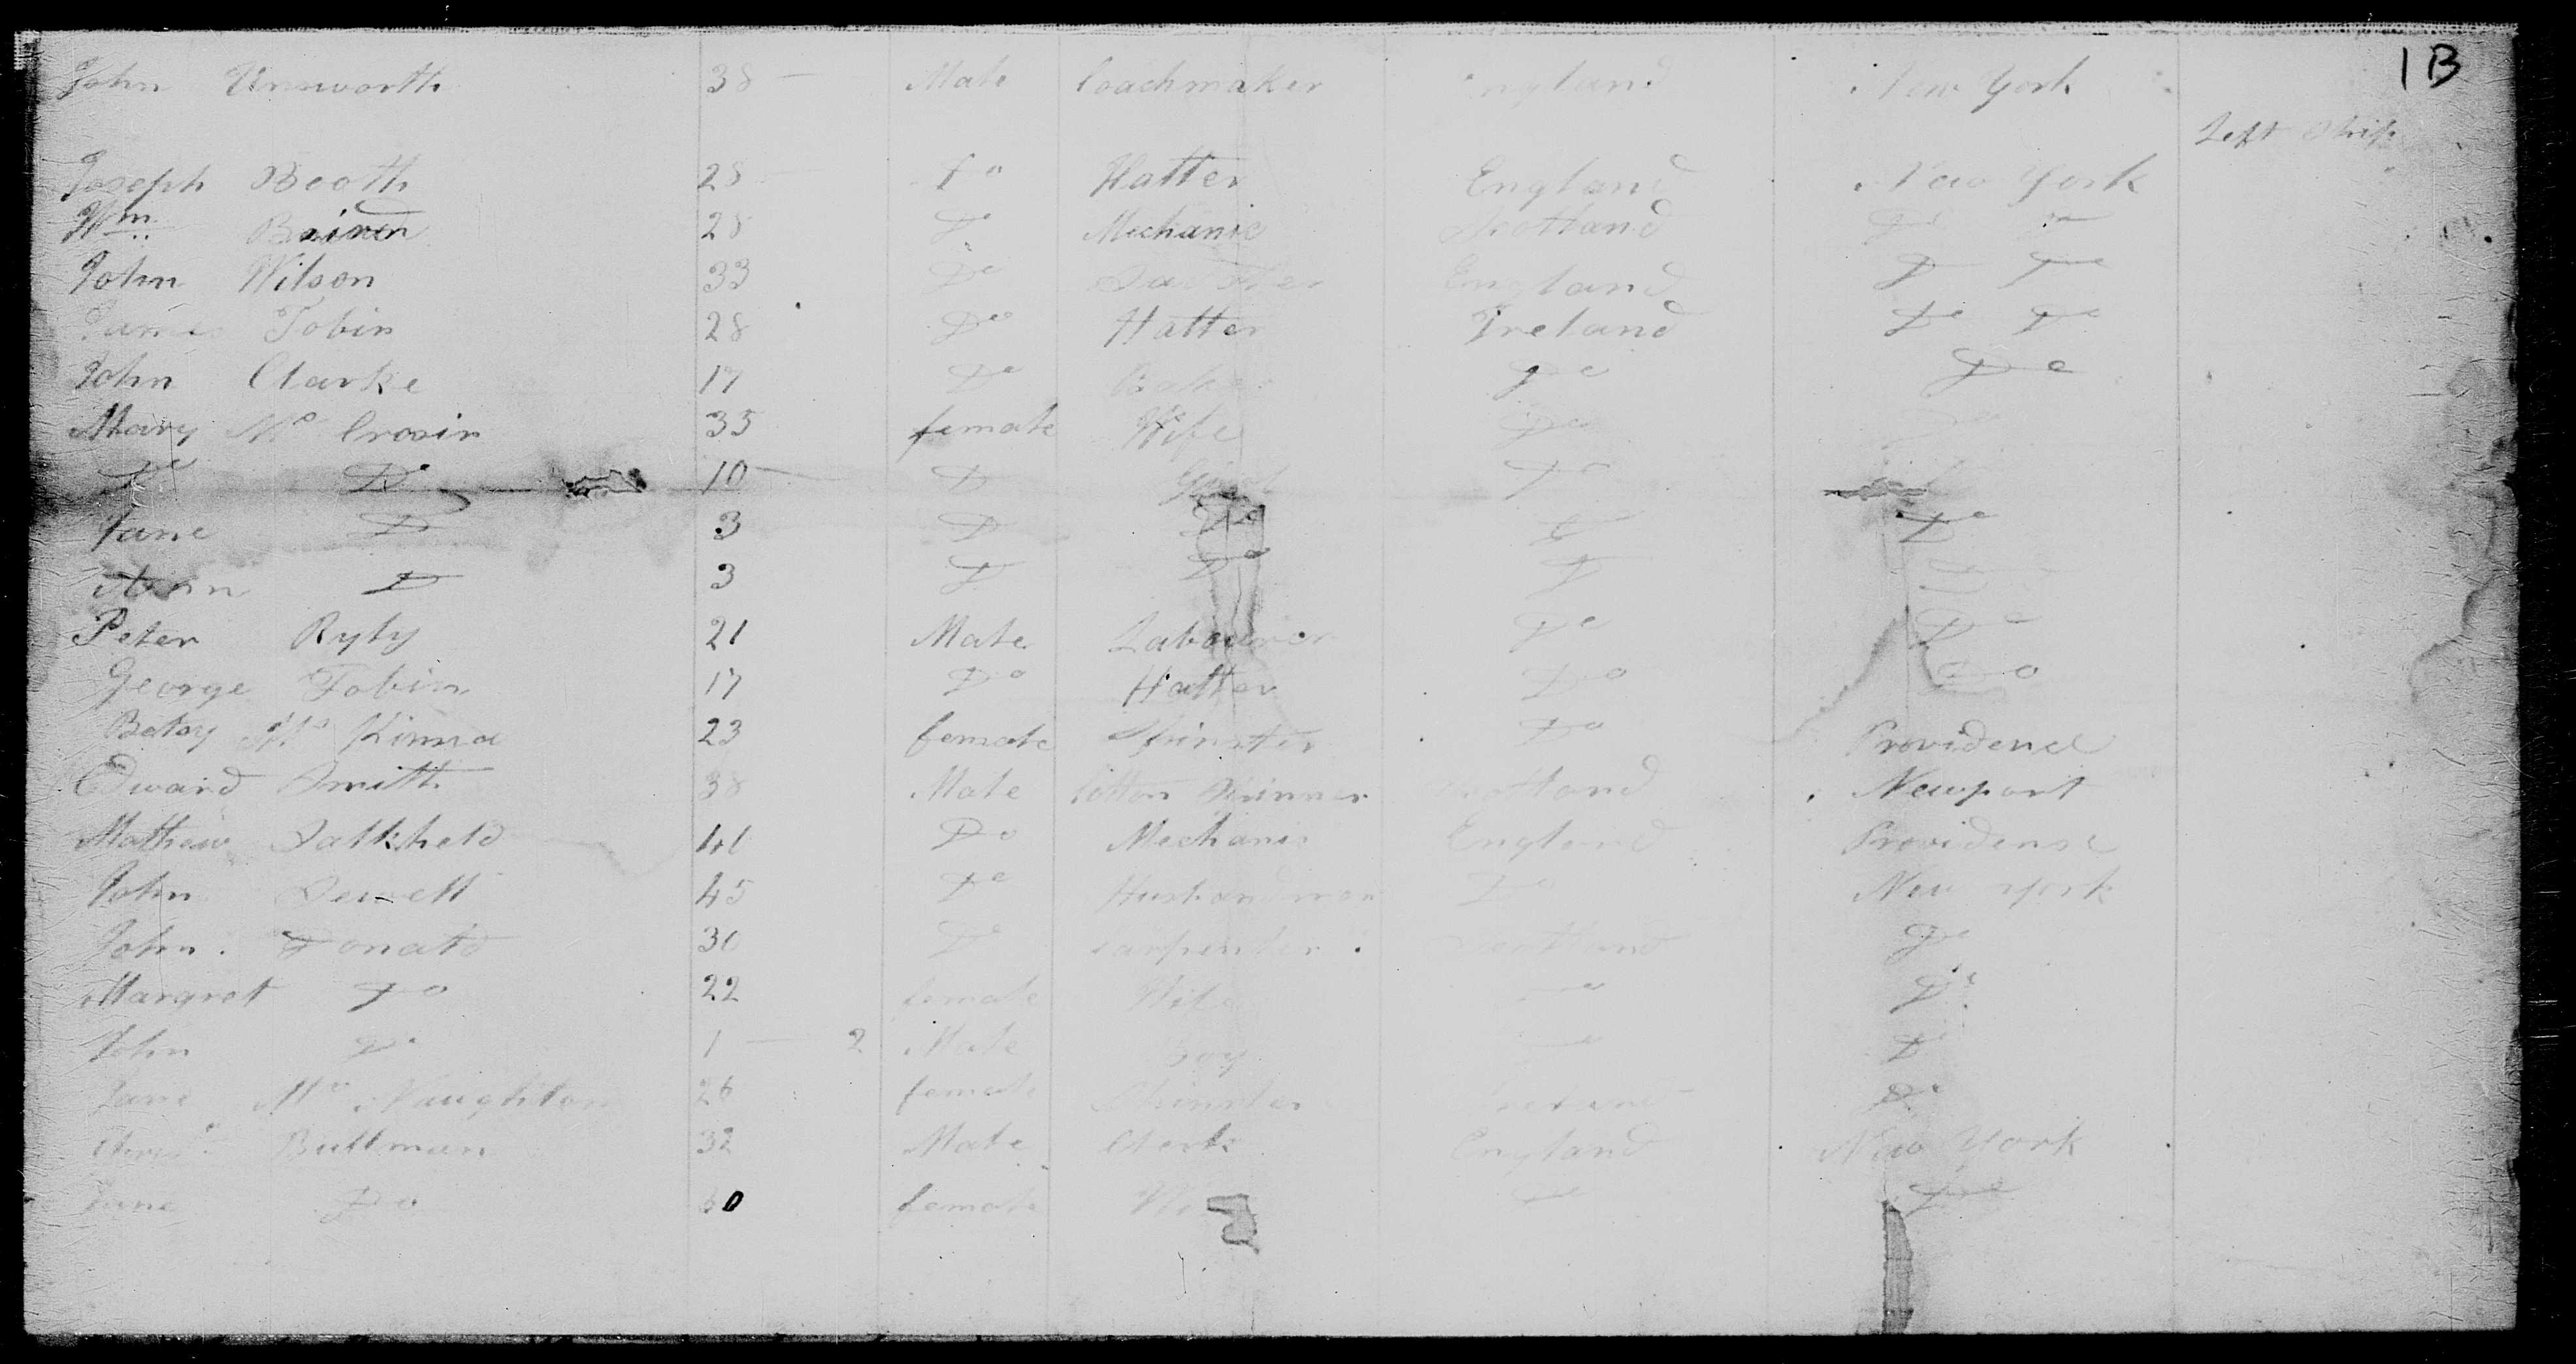 1B
John Unsworth 38 — Male Coachmaker England New York
Left Ship
Joseph Booth 28 Do Hatter England New York
Wm. 28 Do Mechanic Scotland Do Do
John Wilson 33 Do England Do Do
James Tobin 28 Do Hatter Ireland Do Do
John Clarke 17 Do Baker Do Do
Mary Mc Crosin 35 female Wife Do
Do Do 10 — Do Do
Jane Do 3 Do Do Do Do
Ann Do 3 Do Do Do Do
Peter Ryly 21 Male Labourer Do Do
George Tobin 17 Do Hatter Do Do
Betsy Mc Kinna 23 female Spinster Do Providence
Edward Smith 38 Male Cotton Spinner Scotland Newport
Mathew Salkheld 41 Do Mechanic England Providense
John Sewell 45 Do Husbandman Do New York
John Donald 30 Do Carpenter Scotland Do
Margret Do 22 female Wife Do Do
John Do 1 — 2 Male Boy Do Do
Jane Mc Naughton 26 female Spinster Ireland Do
Bullman 32 Male Clerk England New York
Jane Do female Do Do